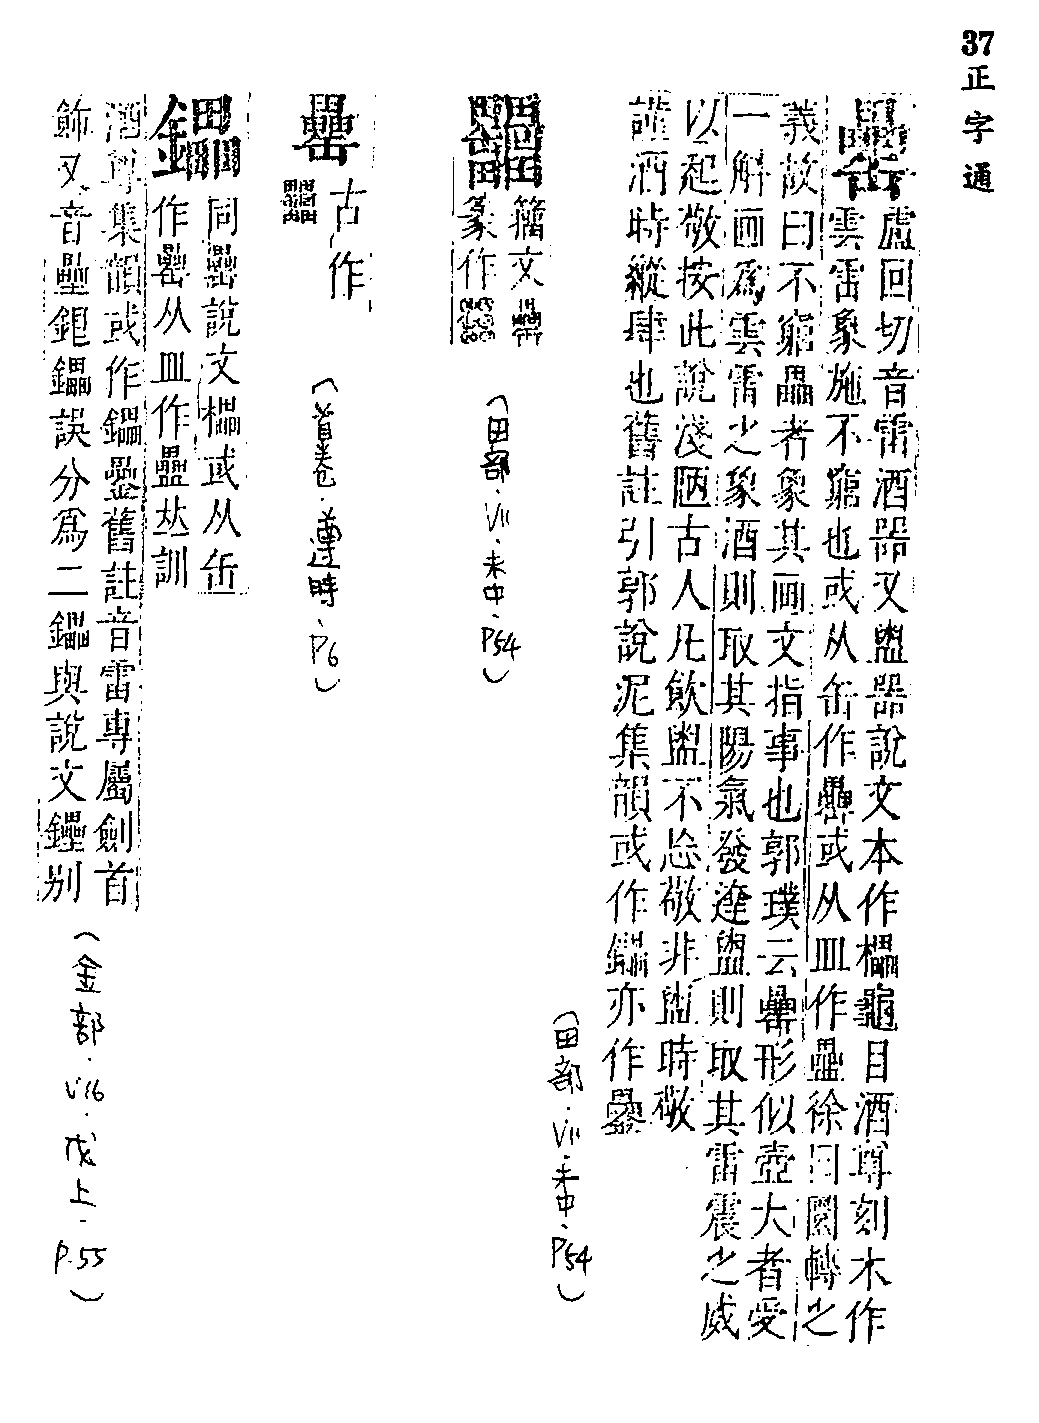 37 正字通
罍
盧回切音雷酒器又盥器說文本作櫑龜目酒尊刻木作
雲雷象施不窮也或从缶作罍或从皿作櫑徐曰圜轉之
義故曰不窮畾者象其画文指事也郭璞云罍形似壺大者受
一斛画為雲雷之象酒則取其陽氣發達盥則取其雷震之威
以起敬按此說淺陋古人凡飲盥不忘敬非盥時敬
謹酒時縱肆也舊註引郭說泥集韻或作鑘亦作
(田部·V11·未中·P54)
籀文
篆作
(田部·V11·未中·P54)
罍
古作
(首卷·遵時·P6)
鑘
同罍說文櫑或从缶
作罍从皿作𥂖𠀤訓
酒尊集韻或作鑘罍舊註音雷專屬劍首
飾又音壘鉅鑘誤分為二鑘與說文鑸別
(金部·V16·戌上·P.55)